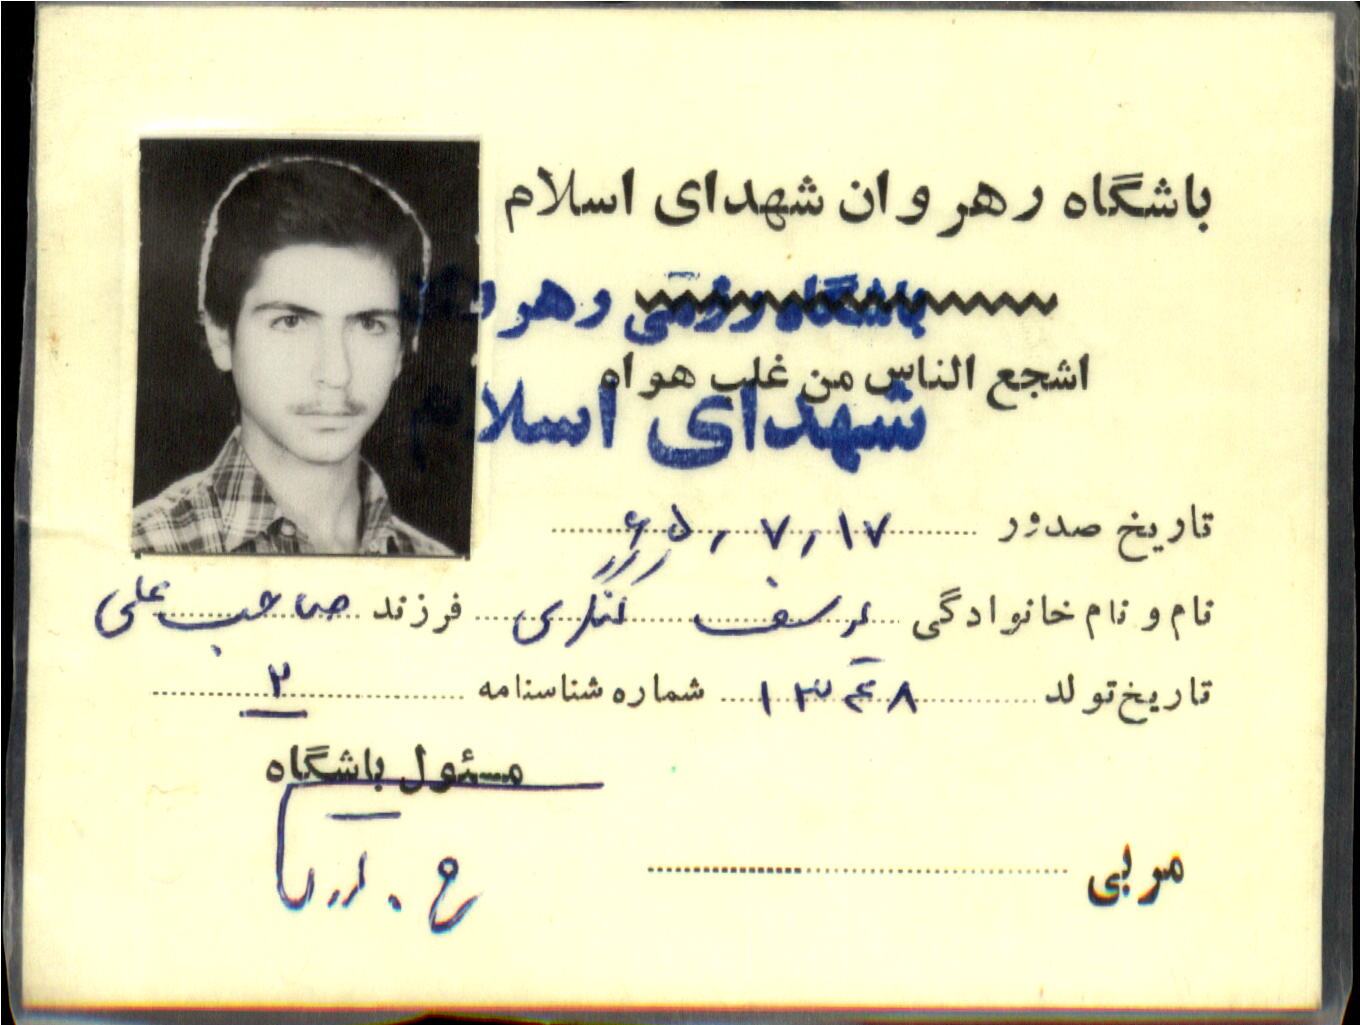 باشگاه رهروان شهدای اسلام
باشگاه رزمی رهروان
اشجع الناس من غلب هواه
شهدای اسلام
تاریخ صدور ۶۵/۷/۱۷
نام و نام خانوادگی یوسف فرزند صاحب علی
تاریخ تولد ۱۳۴۸ شماره شناسنامه ۲
مسئول باشگاه
مربی